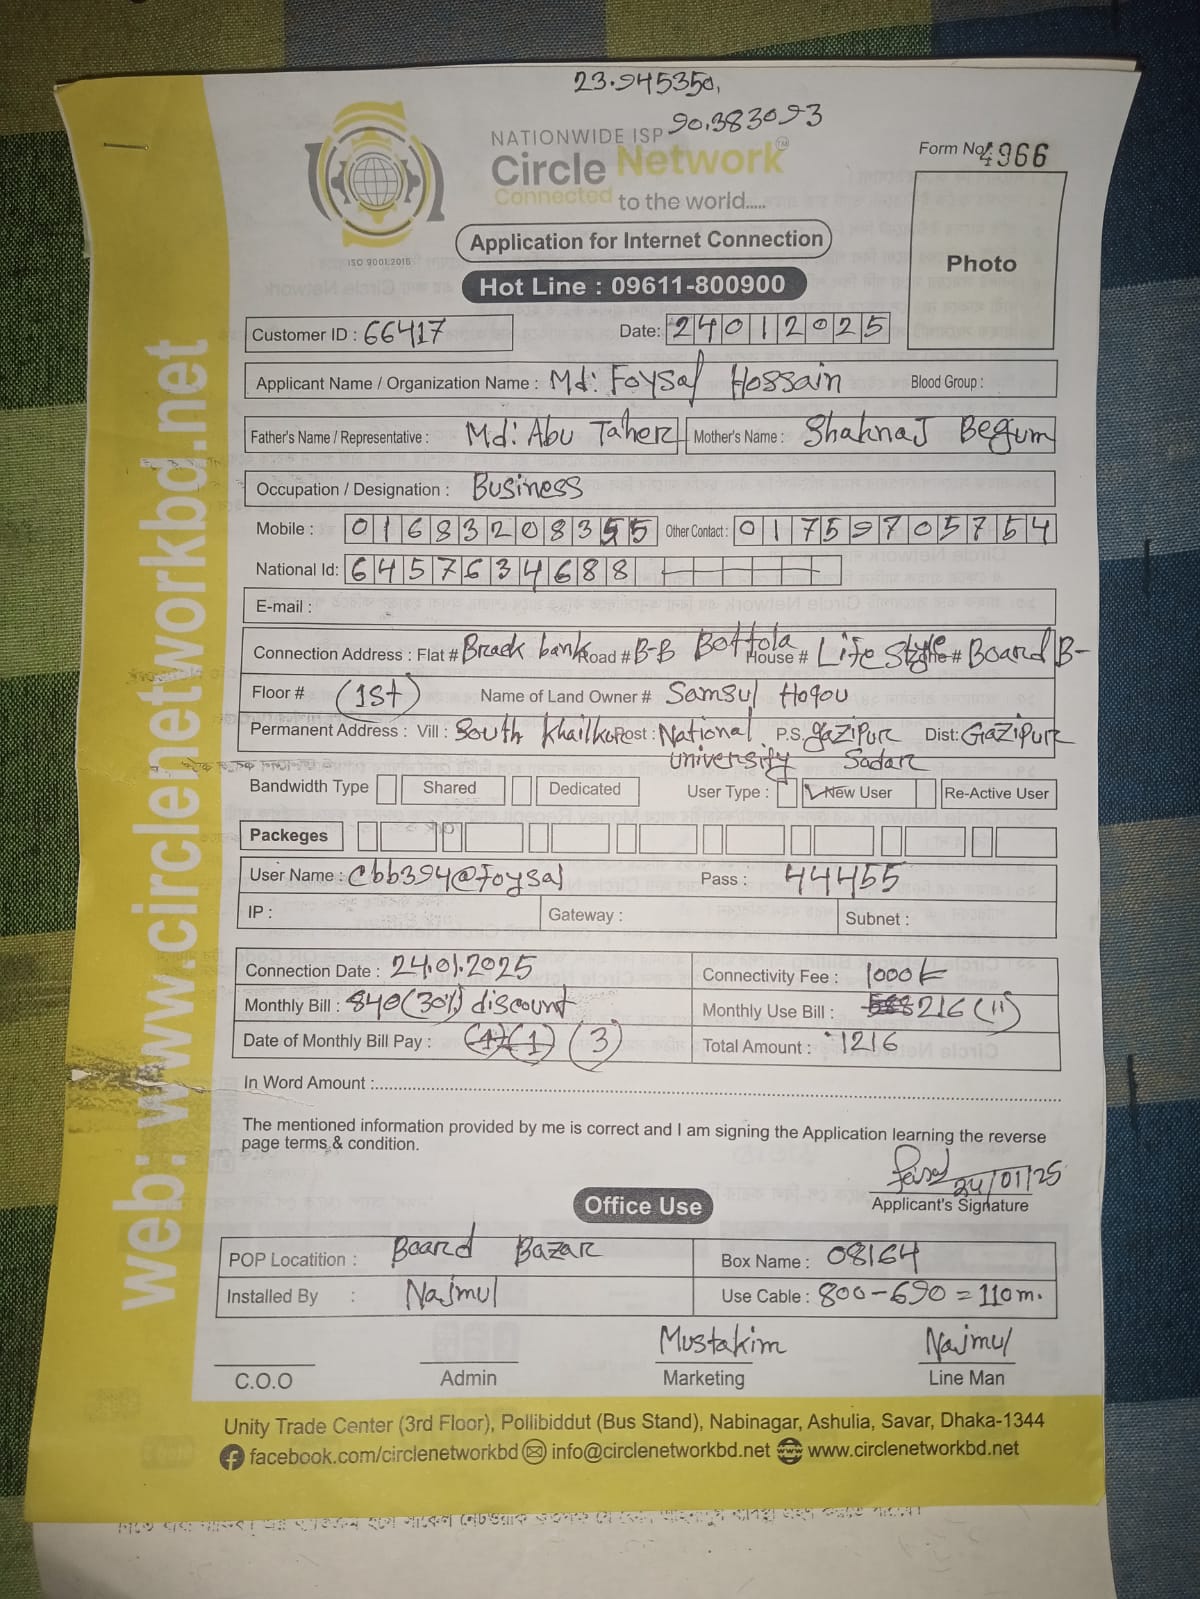 23.945350,
90.383093
NATIONWIDE ISP
Circle Network™
Connected to the world.....
Form No: 4966
ISO 9001:2015
Application for Internet Connection
Photo
Hot Line : 09611-800900
Customer ID : 66417 Date: 24012025
Applicant Name / Organization Name : Md: Foysal Hossain Blood Group :
Father's Name / Representative : Md: Abu Taher Mother's Name : Shahnaj Begum
Occupation / Designation : Business
Mobile : 01683208355 Other Contact : 01759705754
National Id: 6457634688
E-mail :
Connection Address : Flat # Brack bank Road # B-B Bottola House # Life Style # Board B-
Floor # (1st) Name of Land Owner # Samsul Hoqou
Permanent Address : Vill : South Khailkur Post : National university P.S. Gazipur Sadar Dist: Gazipur
Bandwidth Type Shared Dedicated User Type : New User Re-Active User
Packeges
User Name : Cbb394@Foysal Pass : 44455
IP : Gateway : Subnet :
Connection Date : 24.01.2025 Connectivity Fee : 1000৳
Monthly Bill : 840(30%) discount Monthly Use Bill : 216 (11)
Date of Monthly Bill Pay : (1) (1) (3) Total Amount : 1216
In Word Amount :
The mentioned information provided by me is correct and I am signing the Application learning the reverse
page terms & condition.
24/01/25
Applicant's Signature
Office Use
POP Locatition : Board Bazar Box Name : 08164
Installed By : Najmul Use Cable : 800-690 = 110m.
Mustakim Najmul
C.O.O Admin Marketing Line Man
Unity Trade Center (3rd Floor), Pollibiddut (Bus Stand), Nabinagar, Ashulia, Savar, Dhaka-1344
facebook.com/circlenetworkbd info@circlenetworkbd.net www.circlenetworkbd.net
web: www.circlenetworkbd.net